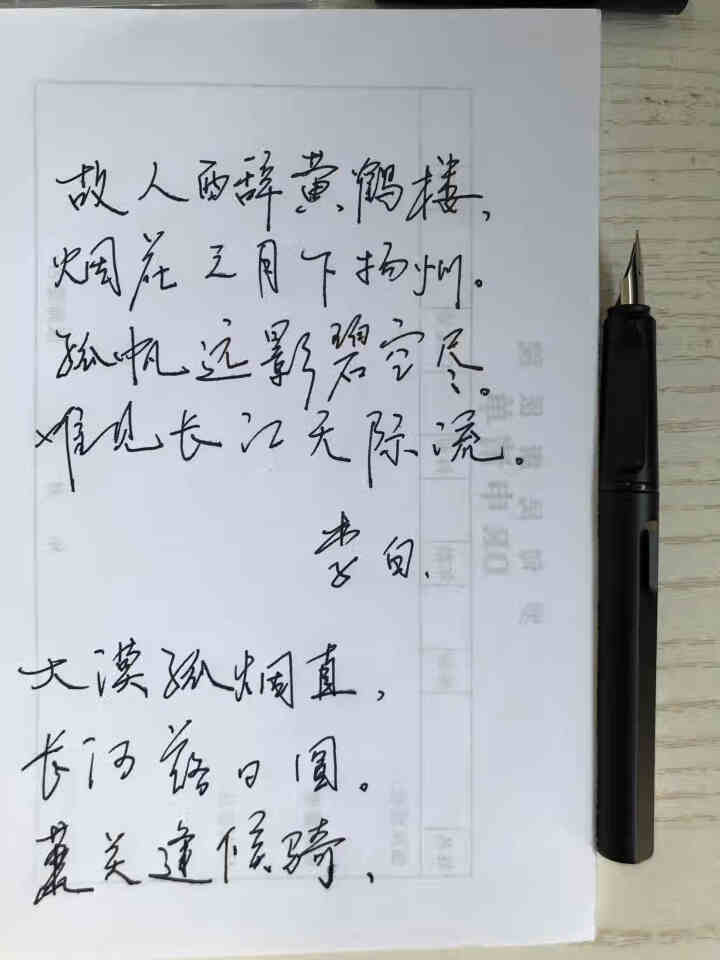 故人西辞黄鹤楼,
烟花三月下扬州。
孤帆远影碧空尽。
唯见长江天际流。
李白.
大漠孤烟直,
长河落日圆。
萧关逢候骑,